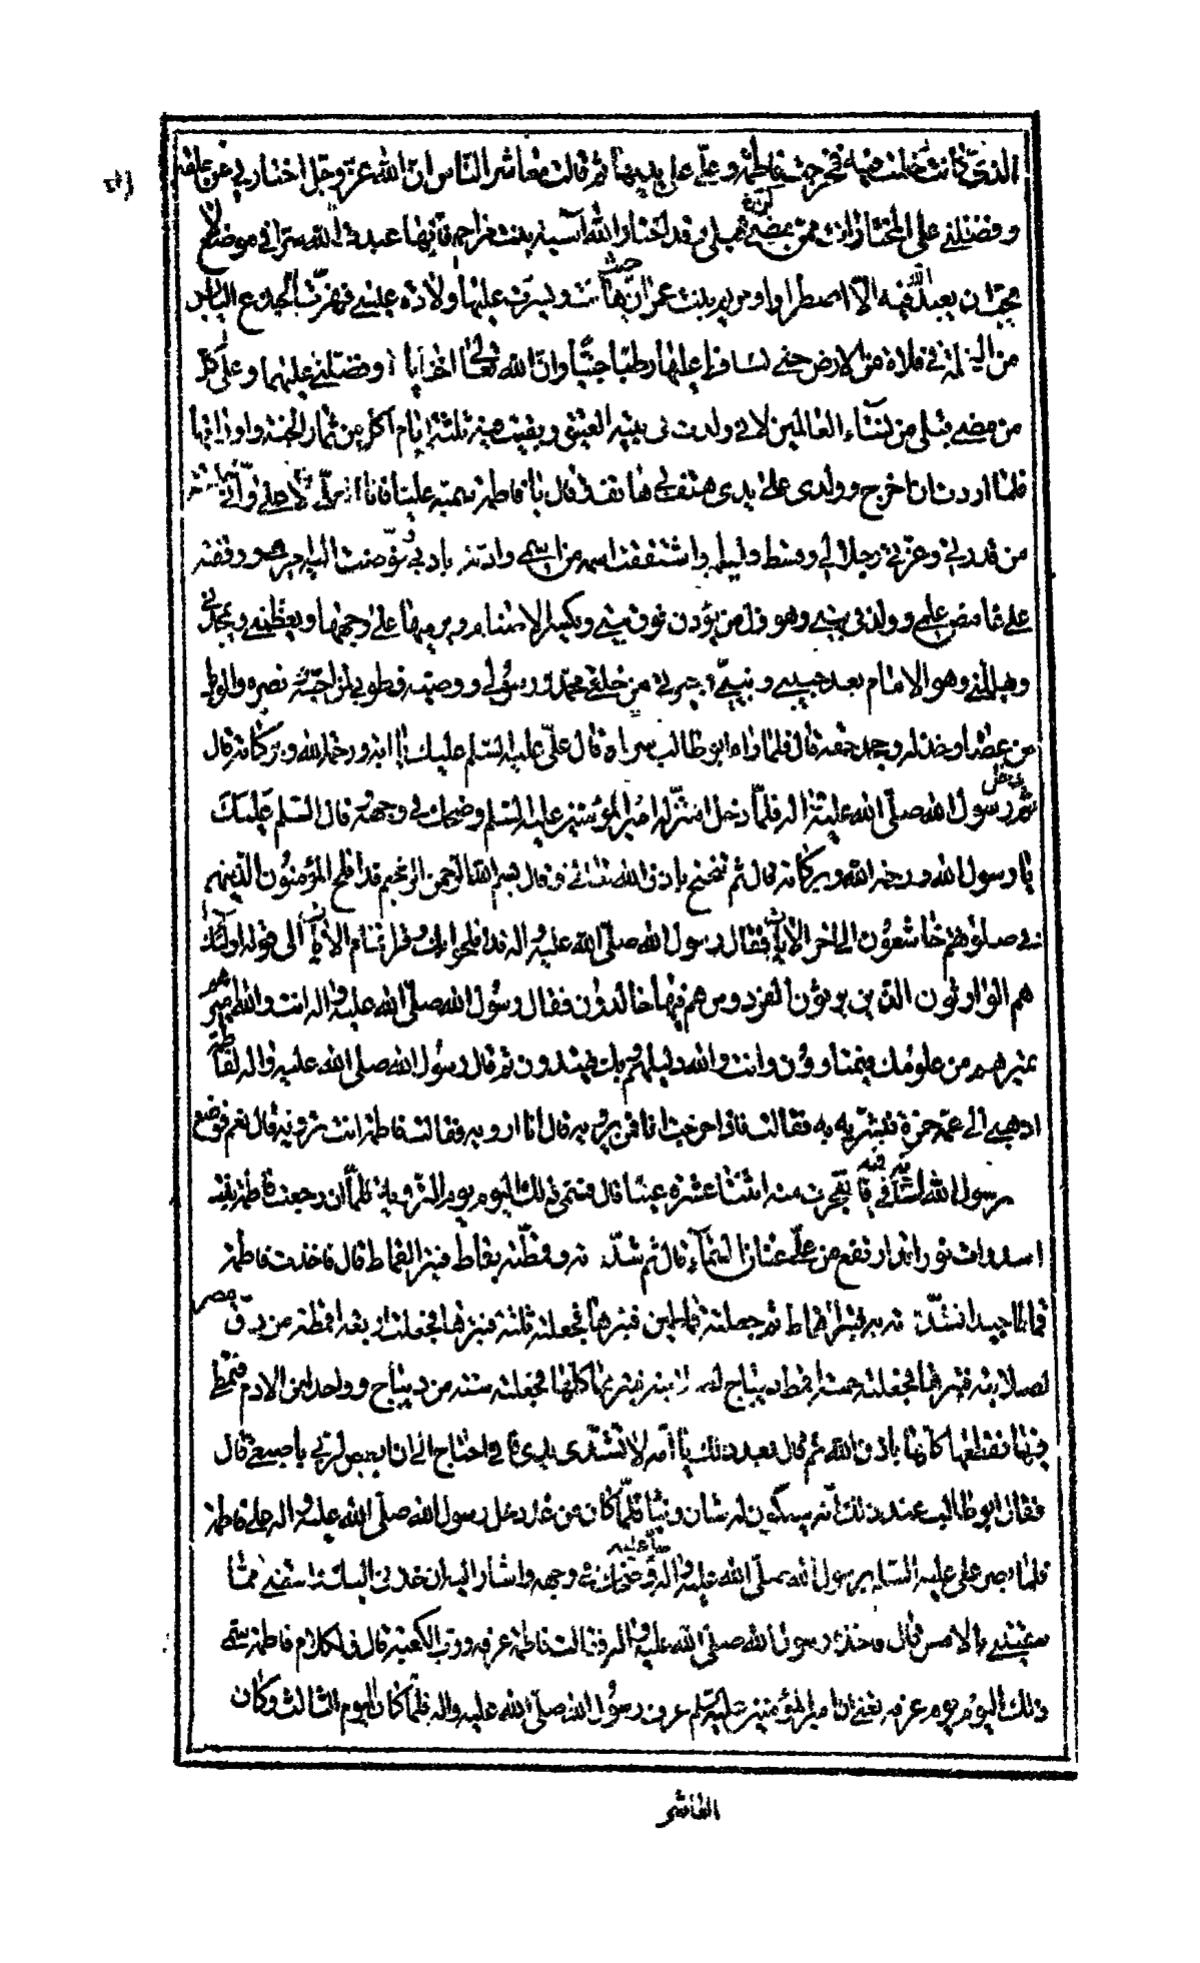 الذي كانت دخلت منه فخرجت فاطمة و علي على يديها ثم قالت معاشر الناس ان الله عز و جل اختارني من خلقه
و فضلني على المختارات ممن مضى قبلي و قد اختار الله آسية بنت مزاحم فانها عبدت الله سرا في موضع لا
يحب ان يعبد الله فيه الا اضطرارا و مريم بنت عمران حيث هانت و يسرت عليها ولادة عيسى فهزت الجذع اليابس
من النخلة في فلاة من الارض حتى تساقط عليها رطبا جنيا وان الله تعالى اختارني و فضلني عليهما و على كل
من مضى قبلي من نساء العالمين لاني ولدت في بيته العتيق و بقيت فيه ثلثة ايام آكل من ثمار الجنة و اوراقها
فلما اردت ان اخرج و ولدي على يدي هتف بي هاتف و قال يا فاطمة سميه عليا فانا العلي الاعلى و اني خلقته
من قدرتي و عز جلالي و قسط عدلي و اشتققت اسمه من اسمي و ادبته بادبي و فوضت اليه امري و وقفته
على غامض علمي و ولد في بيتي و هو اول من يؤذن فوق بيتي و يكسر الاصنام و يرميها على وجهها و يعظمني و يمجدني
و يهللني و هو الامام بعد حبيبي و نبيي و خيرتي من خلقي محمد رسولي و وصيه فطوبى لمن احبه و نصره و الويل
من عصاه و خذله و جحد حقه قال فلما راه ابو طالب سر و قال علي عليه السلم عليك يا ابه و رحمة الله و بركاته قال
ثم دخل رسول الله صلى الله عليه و اله فلما دخل اهتز له امير المؤمنين عليه السلم و ضحك في وجهه و قال السلم عليك
يا رسول الله و رحمة الله و بركاته قال ثم تنحنح باذن الله تعالى و قال بسم الله الرحمن الرحيم قد افلح المؤمنون الذين هم
في صلوتهم خاشعون الى اخر الايات فقال رسول الله صلى الله عليه و اله قد افلحوا بك و قرا تمام الايات الى قوله اولئك
هم الوارثون الذين يرثون الفردوس هم فيها خالدون فقال رسول الله صلى الله عليه و اله انت و الله اميرهم
تميرهم من علومك فيمتارون و انت و الله دليلهم و بك يهتدون ثم قال رسول الله صلى الله عليه و اله لفاطمة
اذهبي الى عمه حمزة فبشريه به فقالت فاذا خرجت انا فمن يرويه قال انا ارويه فقالت فاطمة انت ترويه قال نعم فوضع
رسول الله لسانه في فيه فانفجرت منه اثنتا عشرة عينا قال فسمي ذلك اليوم يوم التروية فلما ان رجعت فاطمة بنت
اسد رات نورا قد ارتفع من علي عنان السماء قال ثم شدته و قمطته بقماط فبتر القماط قال فاخذت فاطمة
قماطا جيدا فشدته به فبتر القماط ثم جعلته قماطين فبترهما فجعلته ثلثة فبترها فجعلته اربعة اقمطة من رق مصر
لصلابته فبترها فجعلته خمسة اقمطة ديباج لصلابته فبترها كلها فجعلته ستة من ديباج و واحدا من الادم فتمطى
فيها فقطعها كلها باذن الله ثم قال بعد ذلك يا امه لا تشدي يدي فاني احتاج الى ان ابصبص لربي باصبعي قال
فقال ابو طالب عند ذلك انه سيكون له شان و نبا فلما كان من غد دخل رسول الله صلى الله عليه و اله على فاطمة
فلما بصر علي عليه السلم برسول الله صلى الله عليه و اله سلم عليه و ضحك في وجهه و اشار اليه ان خذني اليك و اسقني مما
سقيتني بالامس قال فاخذه رسول الله صلى الله عليه و اله فقالت فاطمة عرفه و رب الكعبة قال فلكلام فاطمة سمي
ذلك اليوم يوم عرفة يعني ان امير المؤمنين عليه السلم عرف رسول الله صلى الله عليه و اله فلما كان اليوم الثالث و كان
العاشر